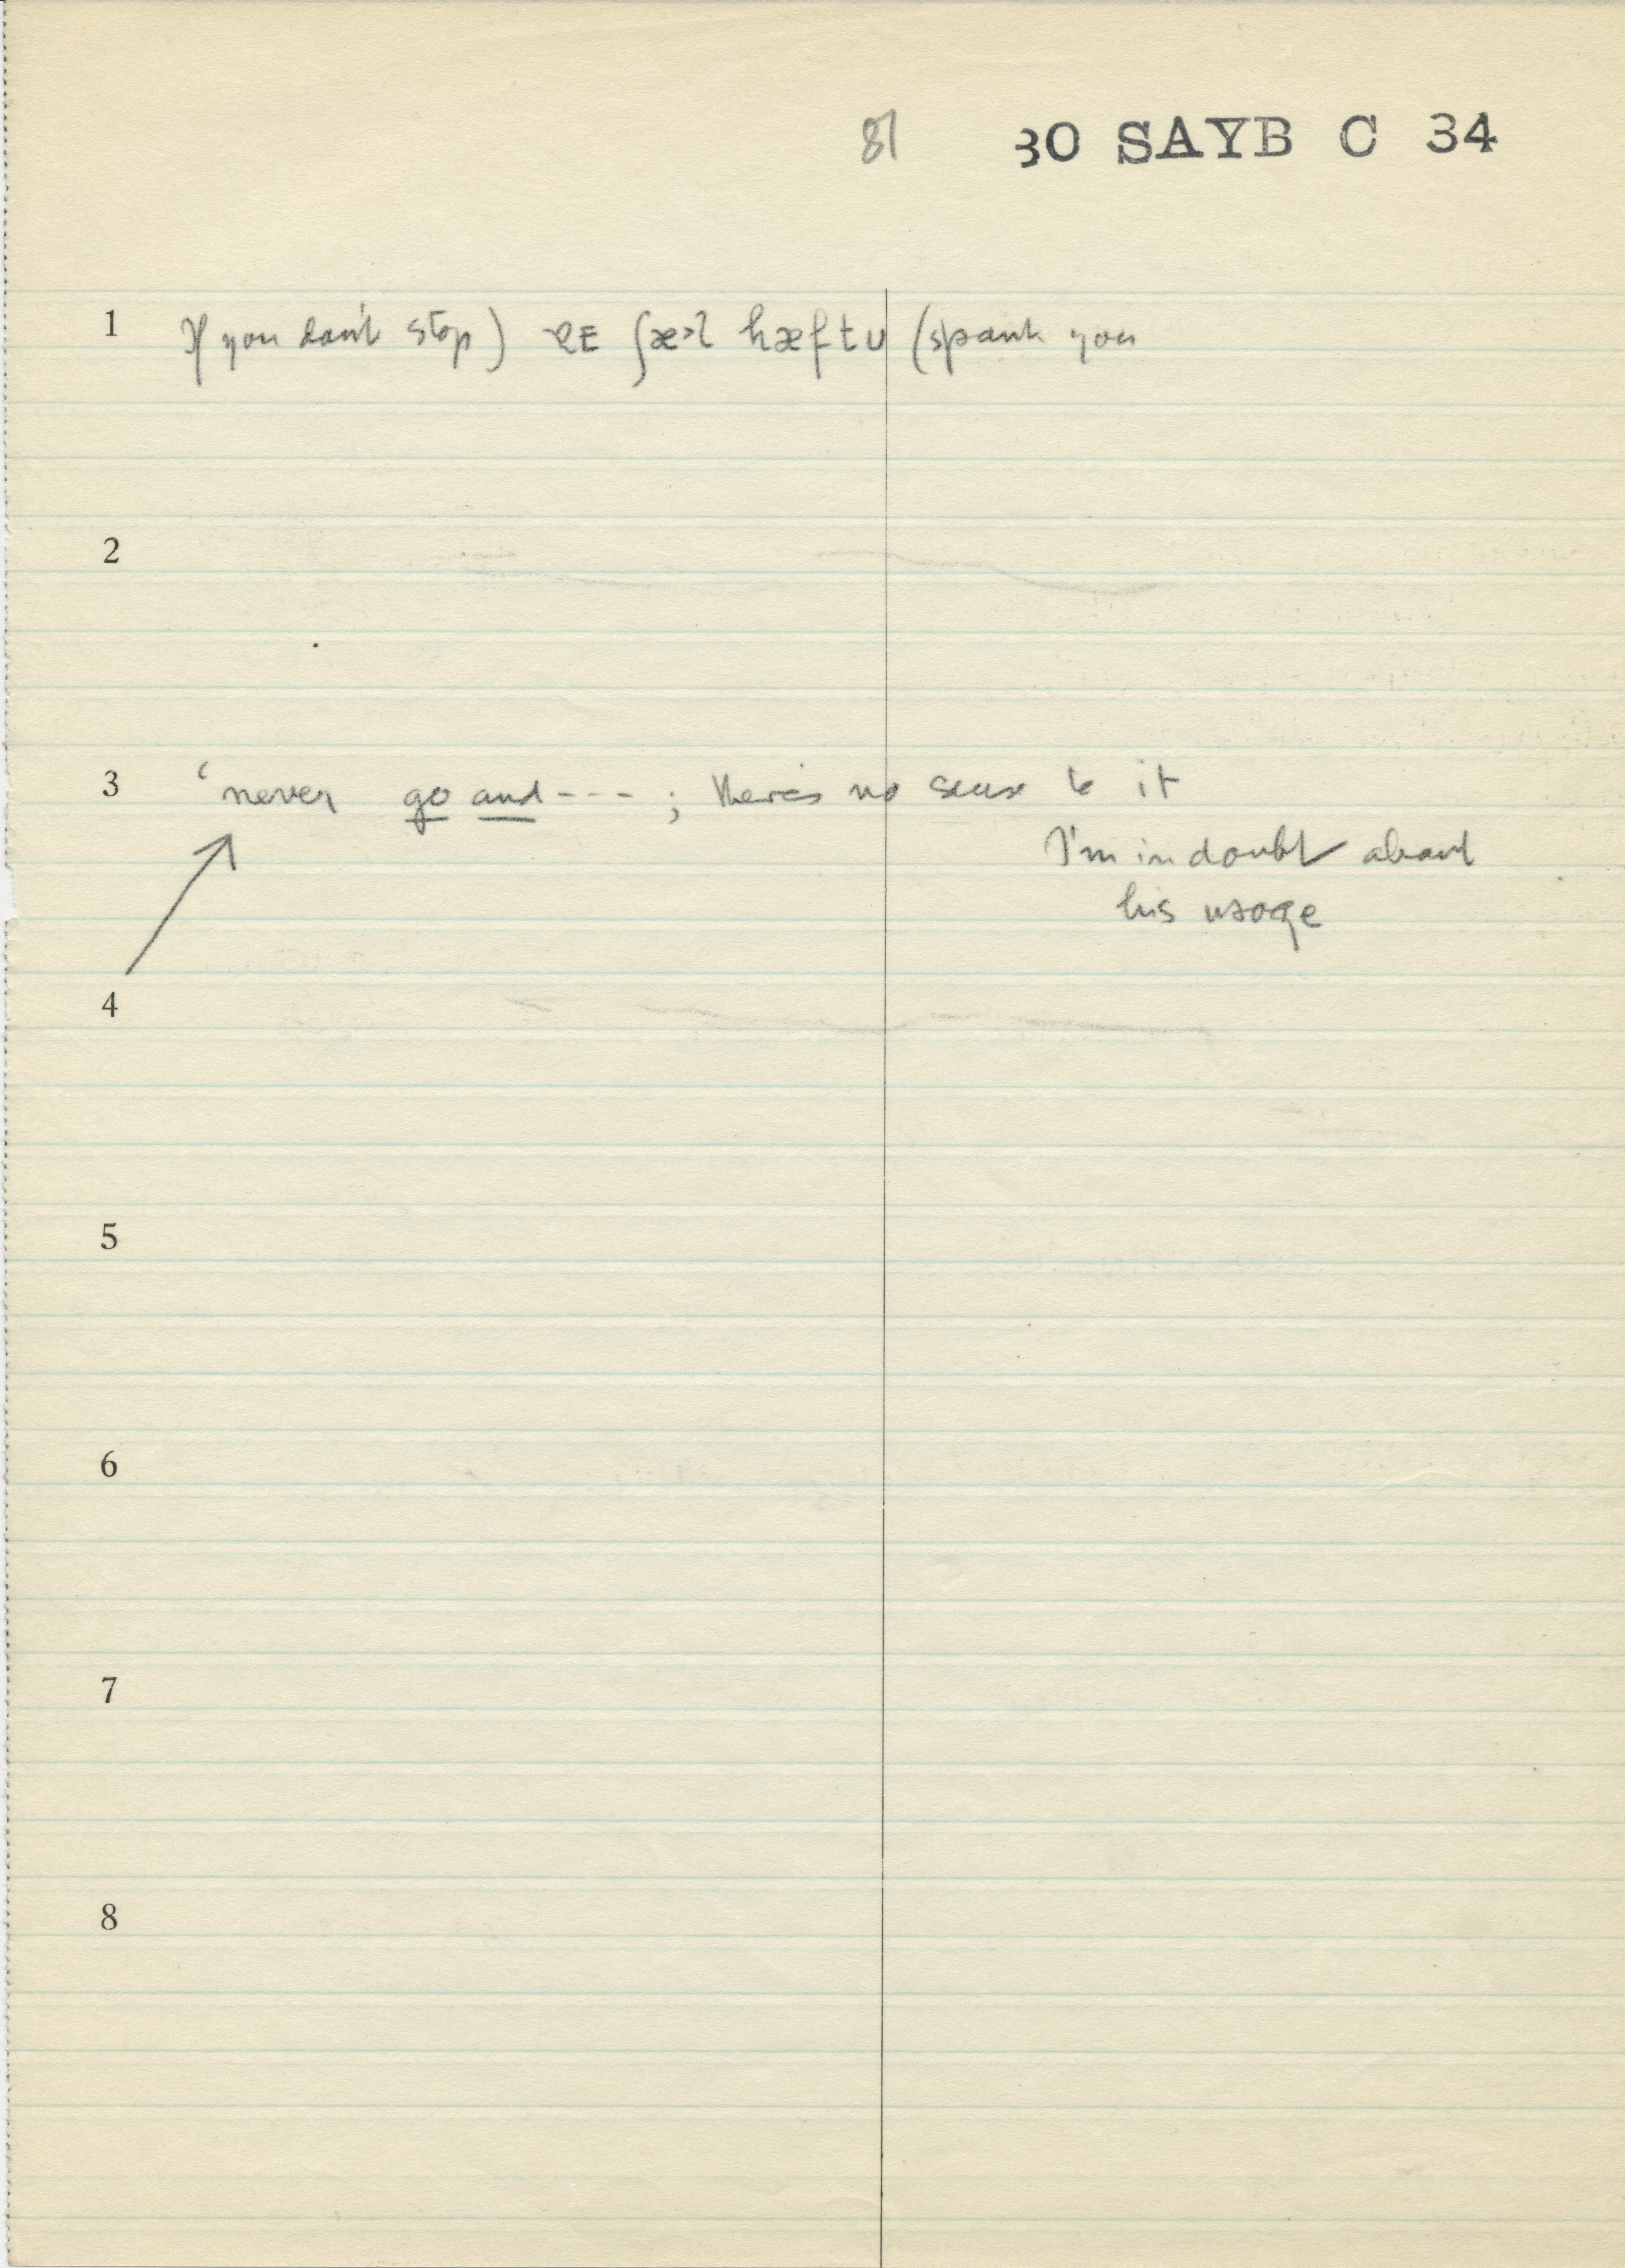 81 30 SAYB C 34
1 If you don't stop) ʃæ>l hæftʊ (spank you
2
3 ‘never go and --- ; there's no sense to it
I'm in doubt about
his usage
4
5
6
7
8